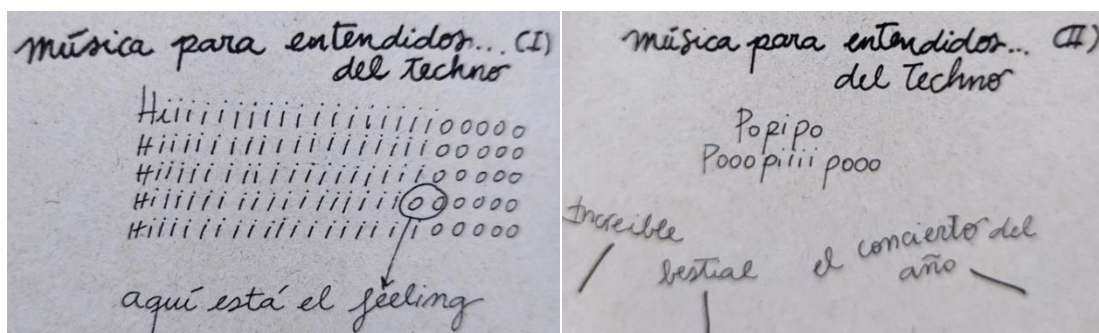 música para entendidos... (I)
del Techno
Hiiiiiiiiiiiiiiiiiiooooo
Hiiiiiiiiiiiiiiiiiiooooo
Hiiiiiiiiiiiiiiiiiiooooo
Hiiiiiiiiiiiiiiiiioooooo
Hiiiiiiiiiiiiiiiiiiooooo
aquí está el feeling
música para entendidos... (II)
del Techno
Popipo
Pooopiiii pooo
Increible
bestial
el concierto del
año